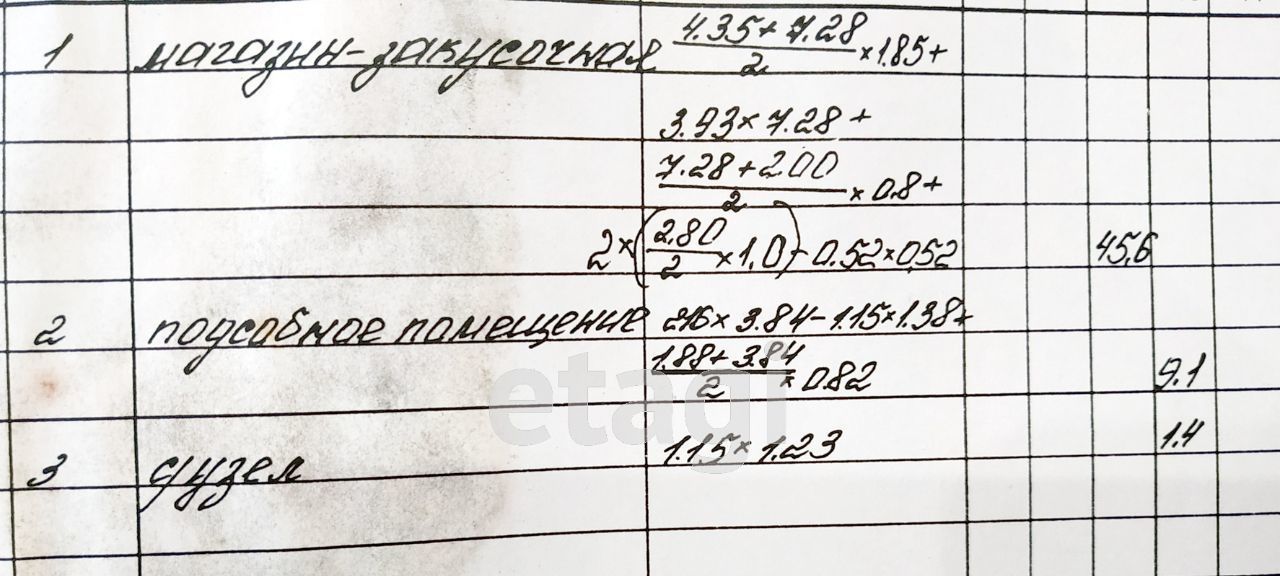 1 магазин-закусочная (4.35+7.28)/2 ×1.85+
3.93×7.28+
(7.28+2.00)/2 ×0.8+
2×(2.80/2 ×1.0)-0.52×0.52 45,6
2 подсобное помещение 2.16×3.84-1.15×1.38+
(1.88+3.84)/2 ×0.82 9.1
3 с/узел 1.15×1.23 1.4
etagi